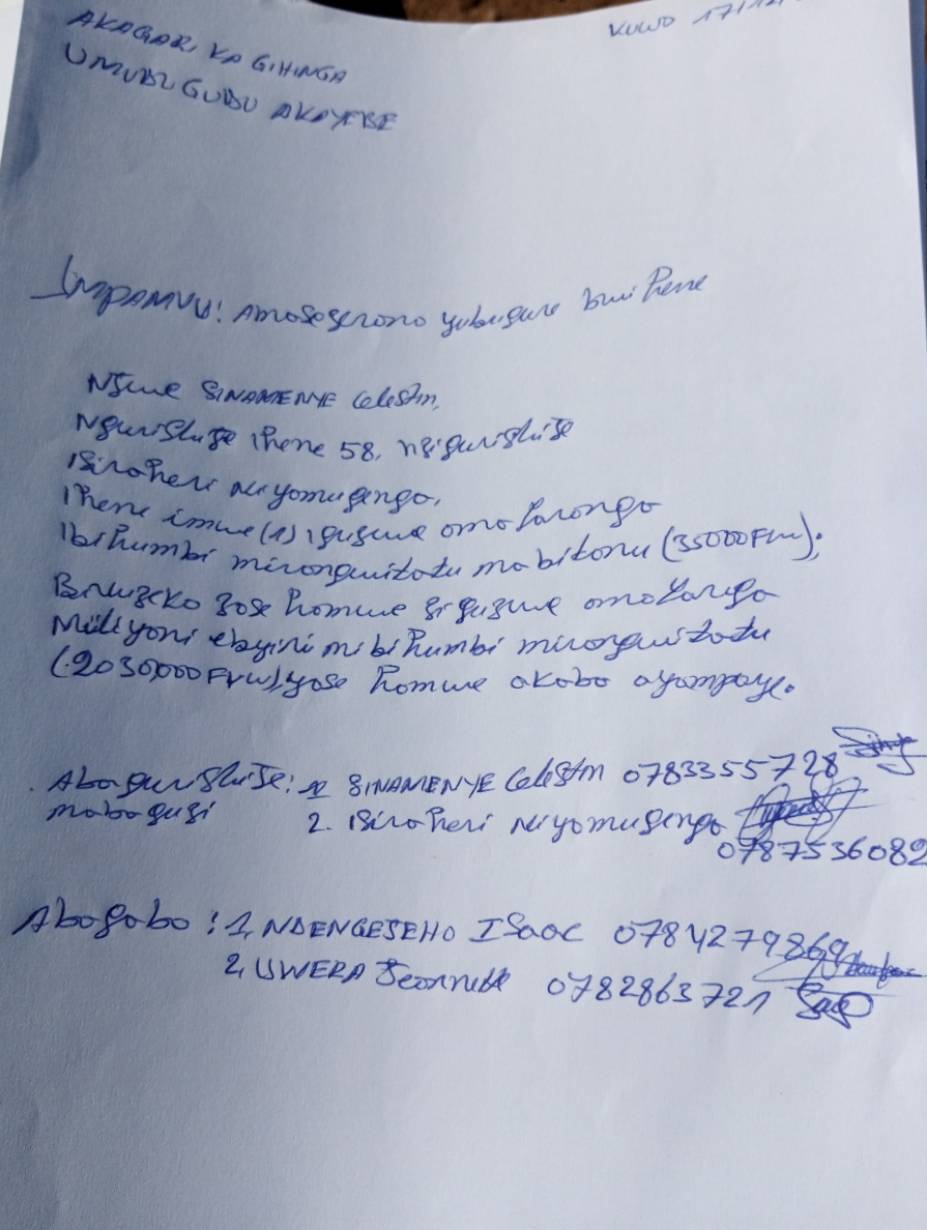 KUWO 17/12/
AKAGARI KA GIHINGA
UMUDUGUDU AKAYEBE
IMPAMVU: Amasezerano yubugure bwi hene
Njewe SINAMENYE Celestin,
Ngurishije ihene 58, nzigurishije
Bizaheri niyomugengo.
Ihene imwe (1) iguzwe amafarongo
Ibihumbi mirongwitatu nabitanu (35000Frw).
Bivuzeko zose hamwe ziguzwe amafaranga
Miliyoni ebyiri nibihumbi mirongwitatu
(2030,000Frw), yose hamwe akaba ayampaye.
Abagurishije: 1. SINAMENYE Celestin 0783355728
nabaguzi 2. Bizaheri niyomugenga
0787536082
Abagabo: 1, NDENGEJEHO Isaac 0784279869
2, UWERA Jeannette 0782863721